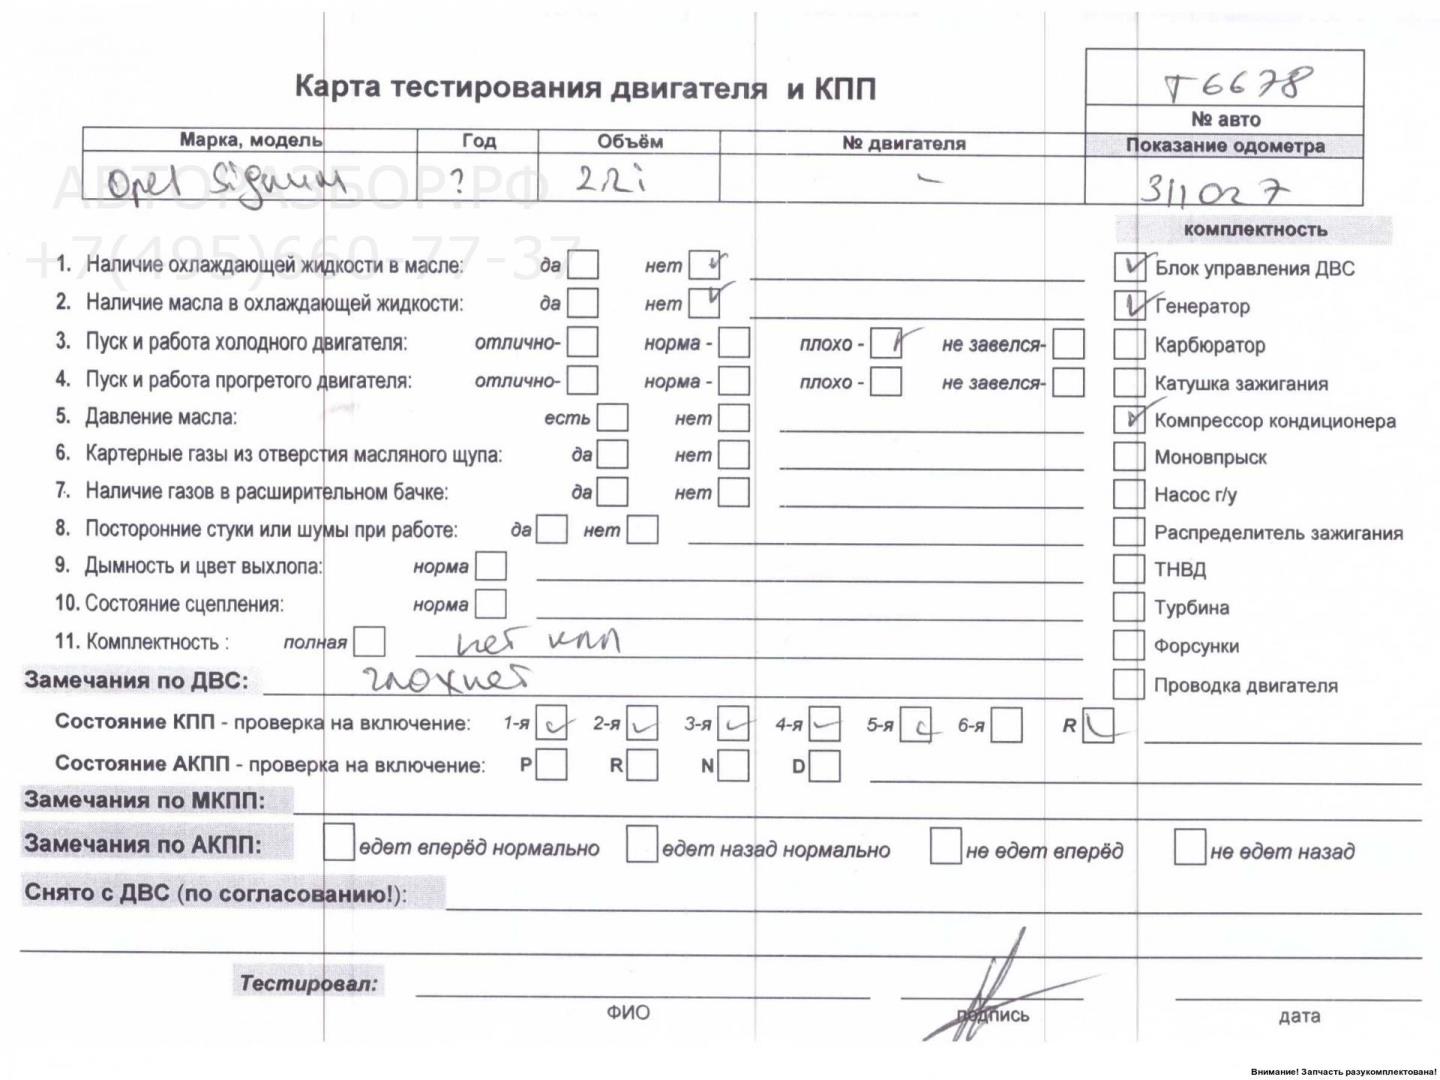 Карта тестирования двигателя и КПП
Т6678
№ авто
Марка, модель Год Объём № двигателя Показание одометра
Opel Signum ? 2.2i - 311027
АВТОРАЗБОР.РФ
+7(495)660-77-37
комплектность
1. Наличие охлаждающей жидкости в масле: да нет
Блок управления ДВС
2. Наличие масла в охлаждающей жидкости: да нет
Генератор
3. Пуск и работа холодного двигателя: отлично- норма - плохо - не завелся-
Карбюратор
4. Пуск и работа прогретого двигателя: отлично- норма - плохо - не завелся-
Катушка зажигания
5. Давление масла: есть нет
Компрессор кондиционера
6. Картерные газы из отверстия масляного щупа: да нет
Моновпрыск
7. Наличие газов в расширительном бачке: да нет
Насос г/у
8. Посторонние стуки или шумы при работе: да нет
Распределитель зажигания
9. Дымность и цвет выхлопа: норма
ТНВД
10. Состояние сцепления: норма
Турбина
11. Комплектность : полная нет кпп
Форсунки
Замечания по ДВС: глохнет
Проводка двигателя
Состояние КПП - проверка на включение: 1-я 2-я 3-я 4-я 5-я 6-я R
Состояние АКПП - проверка на включение: P R N D
Замечания по МКПП:
Замечания по АКПП: едет вперёд нормально едет назад нормально не едет вперёд не едет назад
Снято с ДВС (по согласованию!):
Тестировал:
ФИО подпись дата
Внимание! Запчасть разукомплектована!